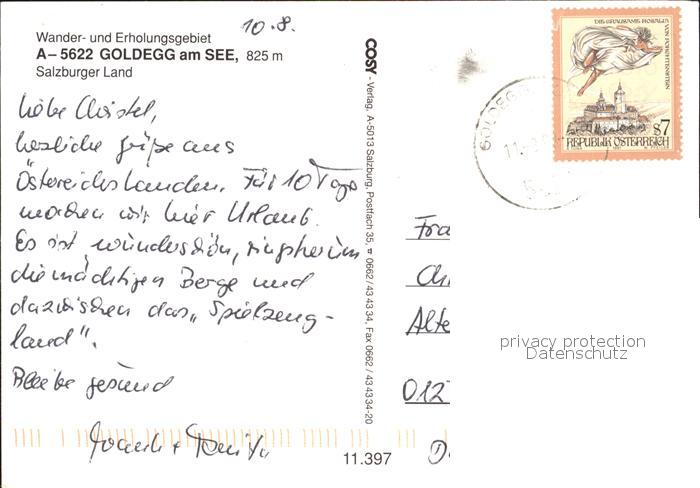 10.8.
Wander- und Erholungsgebiet
A–5622 GOLDEGG am SEE, 825 m
Salzburger Land
Liebe Christel,
herzliche Grüße aus
Österreichs Landen. Für 10 Tage
machen wir hier Urlaub.
Es ist wunderschön, ringsherum
die mächtigen Berge und
dazwischen das „Spielzeug-
land".
Bleibe gesund
COSY - Verlag, A-5013 Salzburg, Postfach 35, ☎ 0662/43 43 34, Fax 0662/43 43 34-20
11.397
DIE GRAUSAME ROSALIA VON FORCHTENSTEIN
S7
REPUBLIK ÖSTERREICH
GOLDEGG
Fra
Ch
Alte
012
D-
privacy protection
Datenschutz